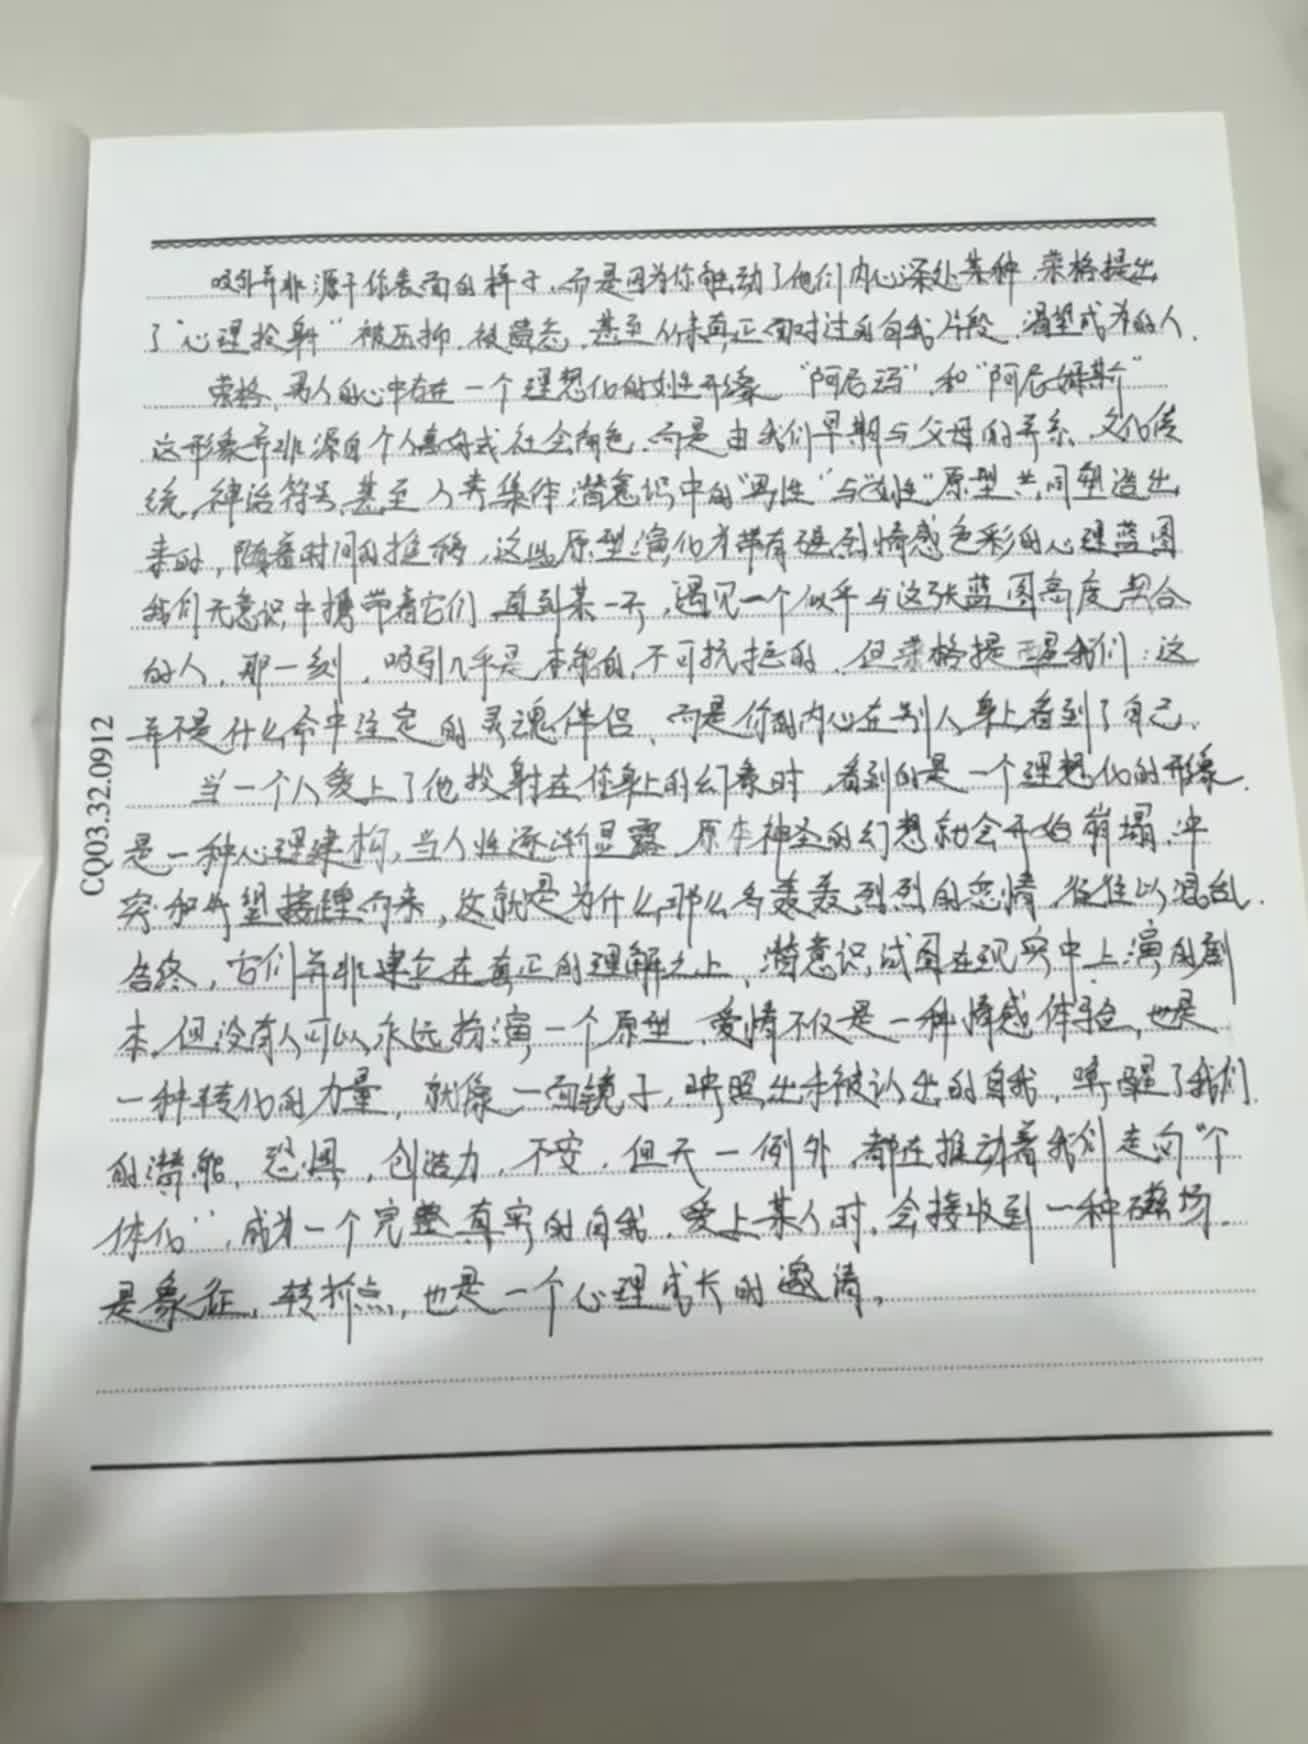 吸引并非源于你表面的样子,而是因为你触动了他们内心深处某种,荣格提出
了"心理投射"被压抑,被遗忘,甚至从未真正面对过的自我片段,渴望成为的人,
荣格,男人的心中存在一个理想化的女性形象 "阿尼玛"和"阿尼姆斯"
这形象并非源自个人喜好或社会角色,而是由我们早期与父母的关系,文化传
统,神话符号,甚至人类集体潜意识中的"男性"与"女性"原型共同塑造出
来的,随着时间的推移,这些原型演化为带有强烈情感色彩的心理蓝图
我们无意识中携带着它们 直到某一天,遇见一个似乎与这张蓝图高度契合
的人,那一刻,吸引几乎是本能的,不可抗拒的,但荣格提醒我们:这
并不是什么命中注定的灵魂伴侣,而是你的内心在别人身上看到了自己,
当一个人爱上了他投射在你身上的幻象时,看到的是一个理想化的形象,
是一种心理建构,当人性逐渐显露,原本神圣的幻想就会开始崩塌,冲
突和失望接踵而来,这就是为什么那么多轰轰烈烈的恋情,往往以混乱
告终,它们并非建立在真正的理解之上,潜意识试图在现实中上演的剧
本,但没有人可以永远扮演一个原型,爱情不仅是一种情感体验,也是
一种转化的力量,就像一面镜子,映照出未被认出的自我,唤醒了我们
的潜能,恐惧,创造力,不安,但无一例外,都在推动着我们走向"个
体化",成为一个完整真实的自我,爱上某人时,会接收到一种磁场,
是象征,转折点,也是一个心理成长的邀请,
CQ03.32.0912